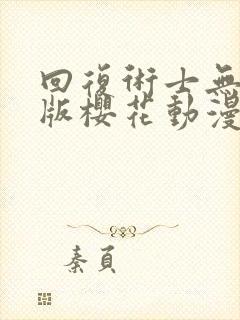 回復術士無
版櫻花動漫
秦頁